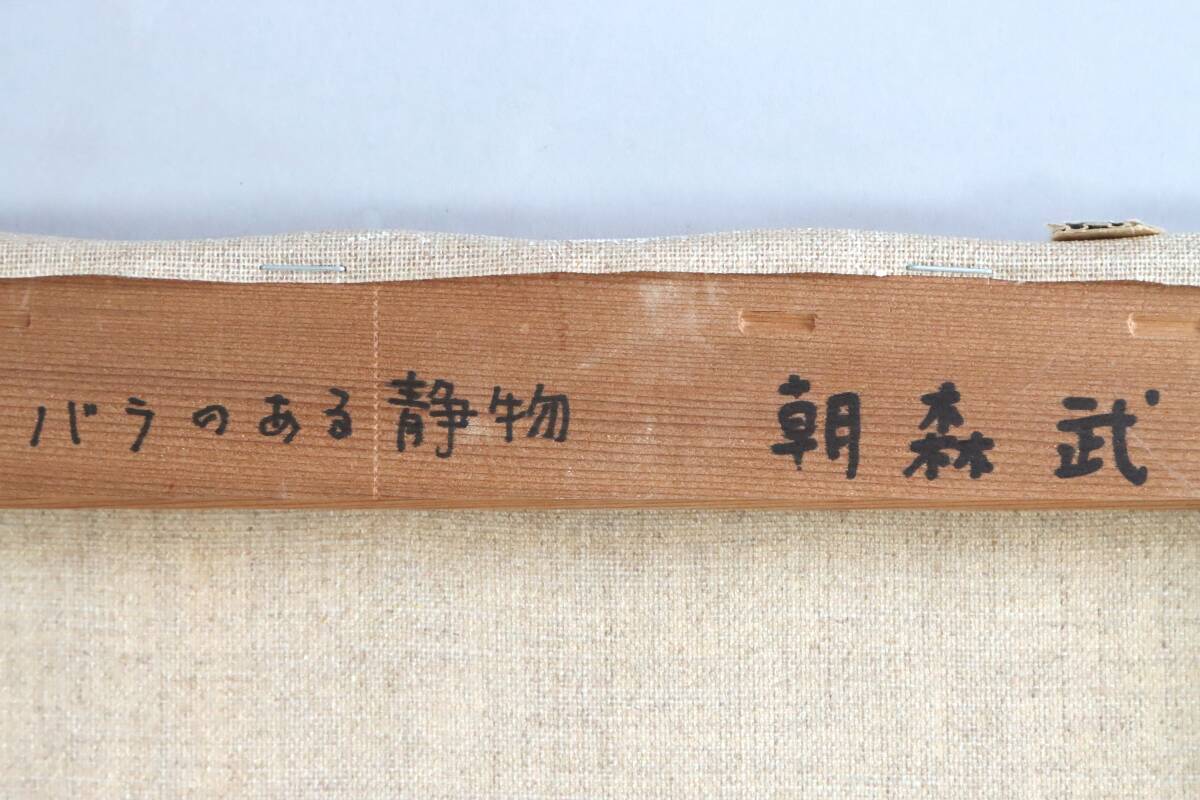 バラのある静物 朝森武